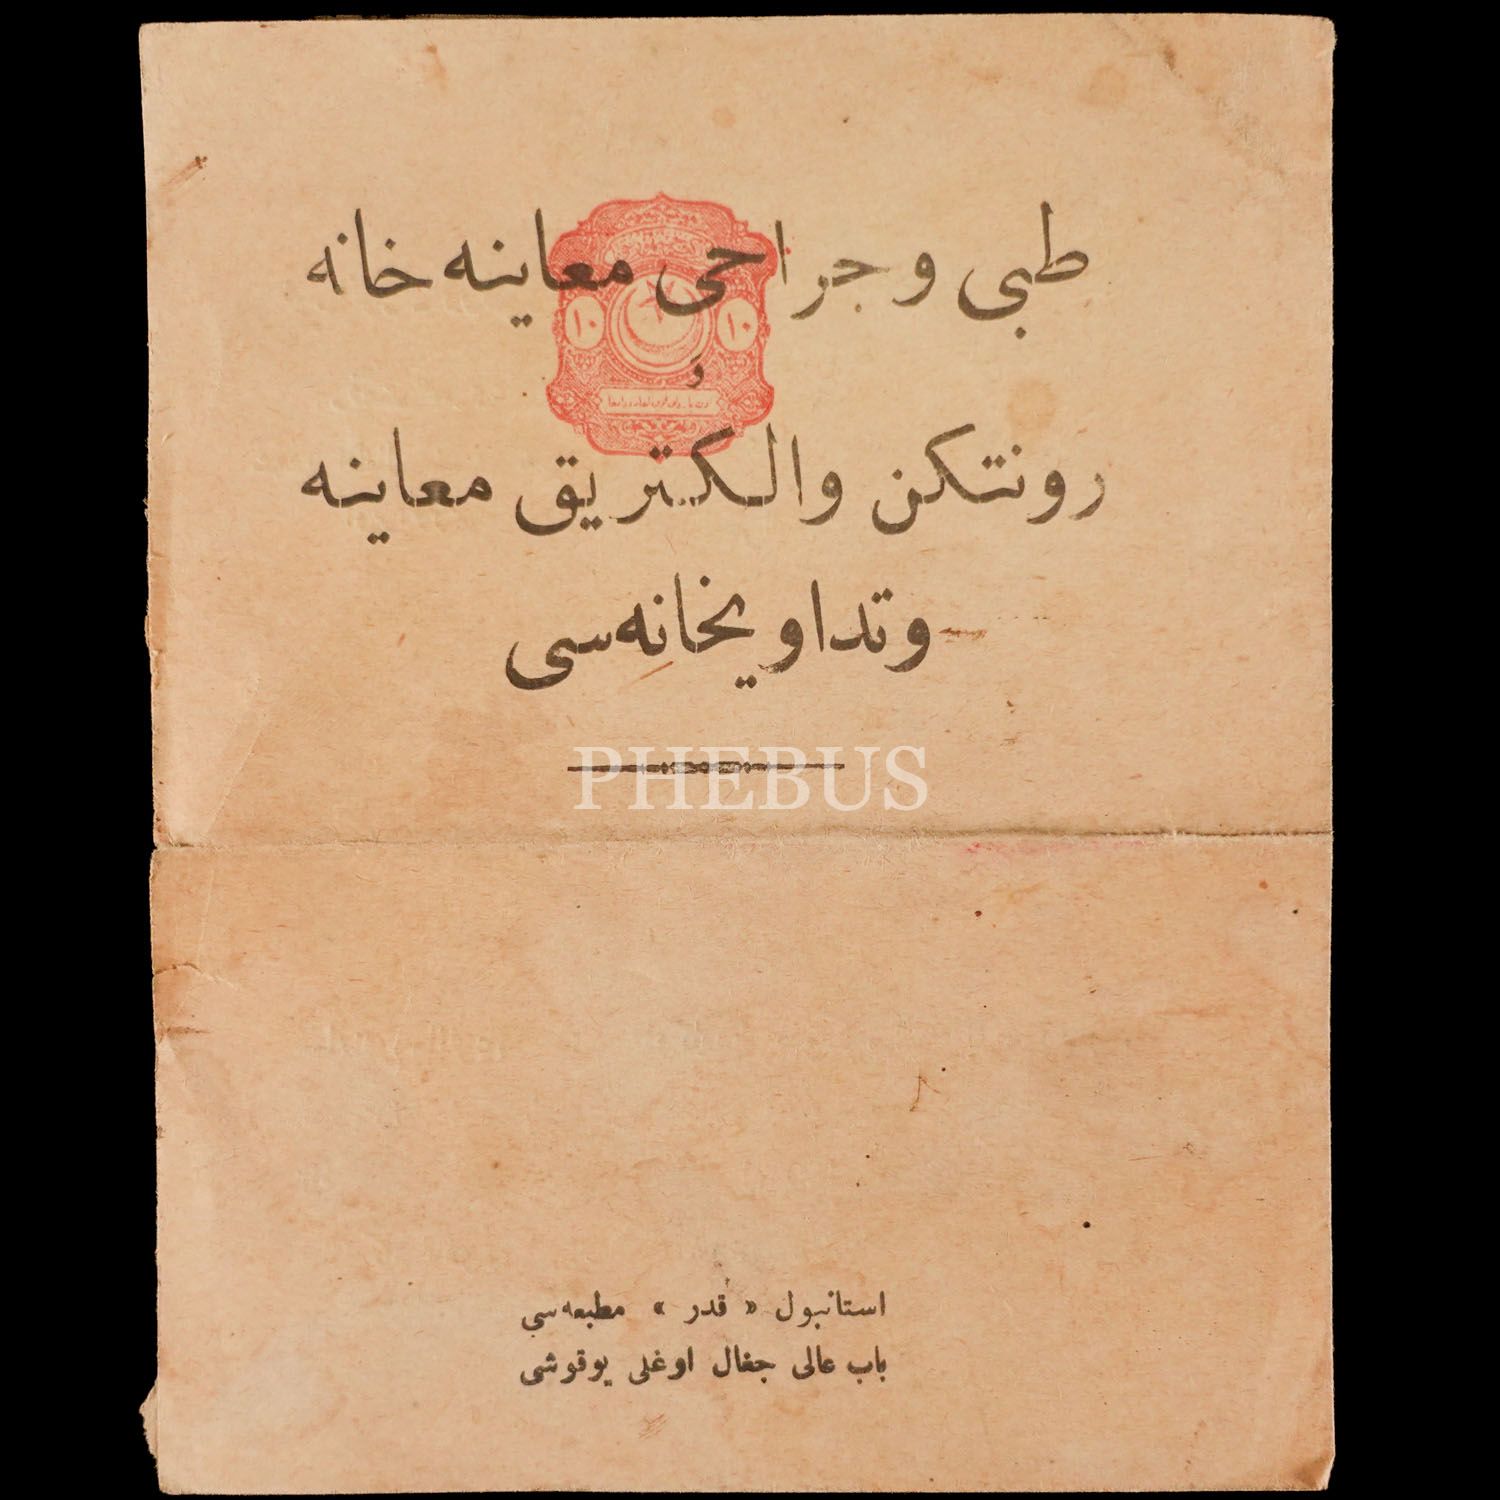 طبی و جراحی معاینه خانه
١٠ ١٠
و
رونتکن والکتریق معاینه
وتداویخانه‌سی
PHEBUS
استانبول « قدر » مطبعه‌سی
باب عالی جغال اوغلی یوقوشی